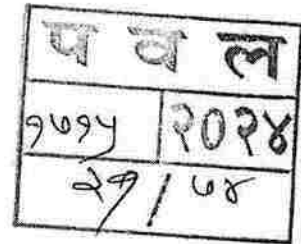 प व ल
१७१५ २०२४
२९ / ७४